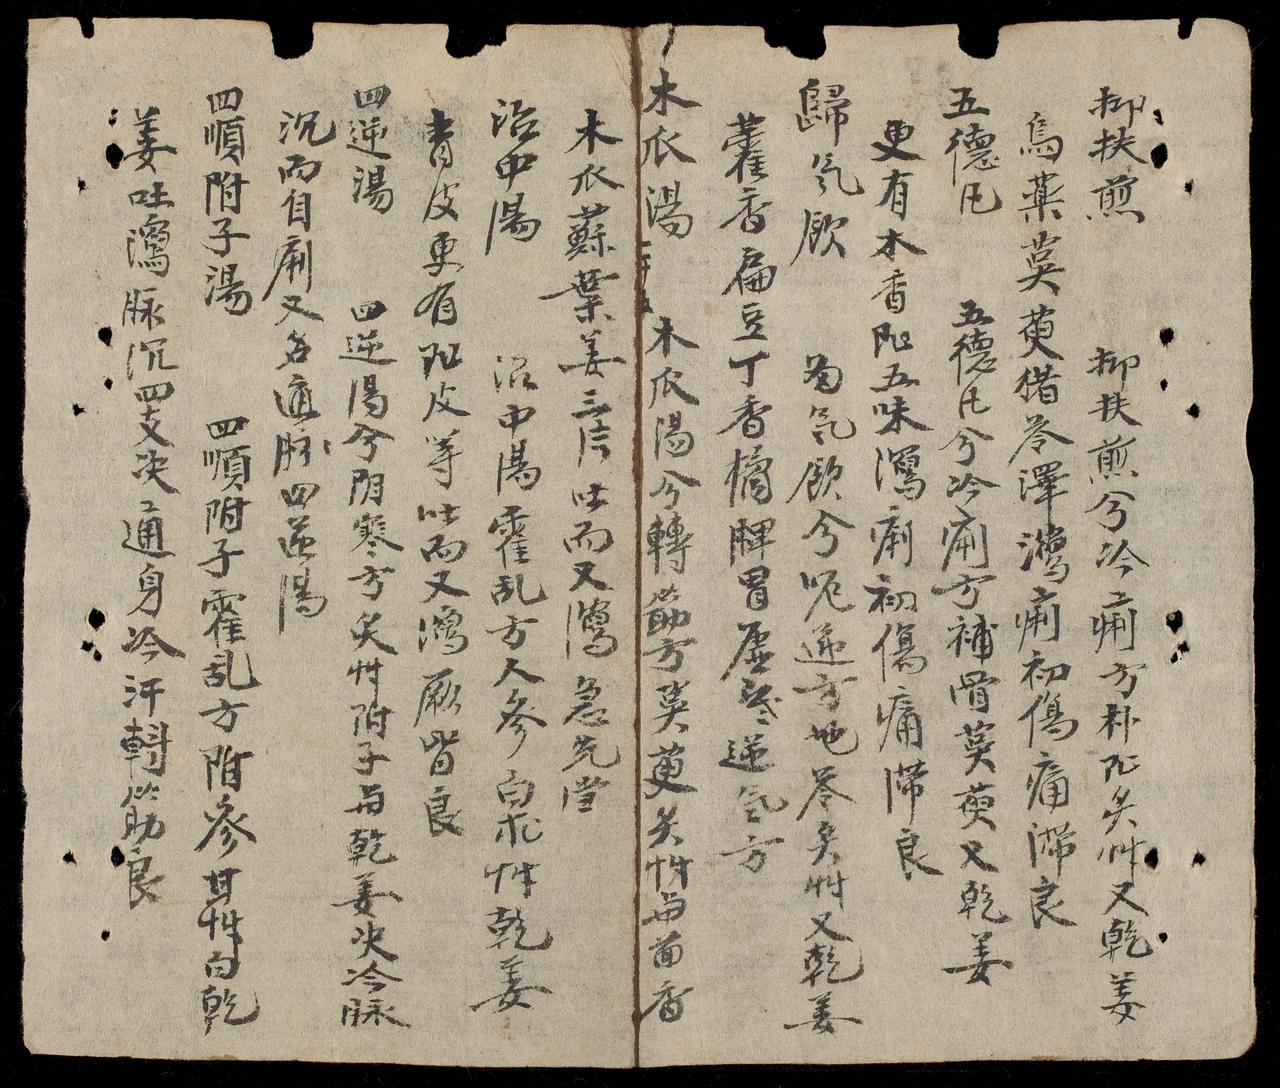 抑扶煎　抑扶煎兮冷痢方朴陳炙艸又乾姜
烏藥茱萸猪苓澤瀉痢初傷痛滯良
五德丸　五德丸兮冷痢方補骨茱萸又乾姜
更有木香陳五味瀉痢初傷痛滯良
歸氣飮　歸氣飮兮呃逆方地苓炙艸又乾姜
藿香扁豆丁香橘脾胃虛寒逆氣方
木瓜湯　木瓜湯兮轉筋方茱萸炙艸與茴香
木瓜蘇葉姜三片吐而又瀉急先當
治中湯　治中湯霍乱方人參白朮艸乾姜
靑皮更有陳皮等吐而又瀉厥皆良
四逆湯　四逆湯兮阴寒方炙艸附子與乾姜決冷脉
沉而自痢又名通脉四逆湯
四順附子湯　四順附子霍乱方附參甘艸白乾
姜吐瀉脉沉四支决通身冷汗轉筋良